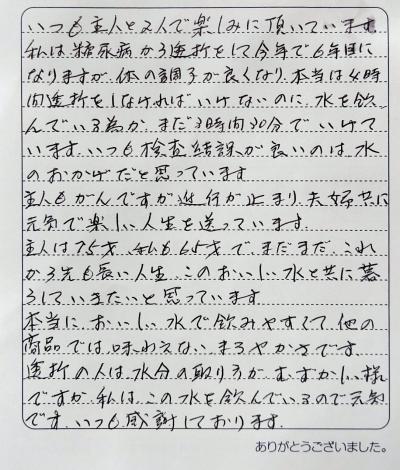 いつも主人と2人で楽しみに頂いています
私は糖尿病から透析をして今年で6年目に
なりますが、体の調子が良くなり、本当は4時
間透析をしなければいけないのに、水を飲
んでいる為か、まだ3時間30分でいけて
います。いつも検査結果が良いのは水
のおかげだと思っています
主人もがんですが進行が止まり夫婦共に
元気で楽しい人生を送っています。
主人は75才、私も65才でまだまだこれ
から先も長い人生、このおいしい水と共に暮
らしていきたいと思っています
本当に、おいしい水で飲みやすくて、他の
商品では、味わえない、まろやかさです。
透析の人は、水分の取り方が、むずかしい様
ですが、私は、この水を飲んでいるので元気
です。いつも感謝しております。
ありがとうございました。